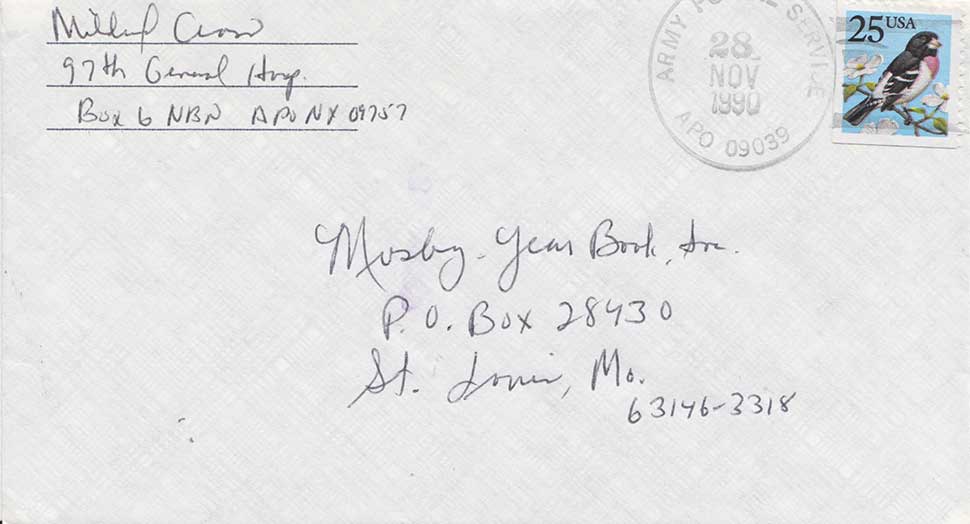 97th General Hosp.
Box 6 NBN APO NY 09757
ARMY POSTAL SERVICE
28
NOV
1990
APO 09039
25 USA
Mosby-Year Book, Inc.
P.O. Box 28430
St. Louis, Mo.
63146-3318